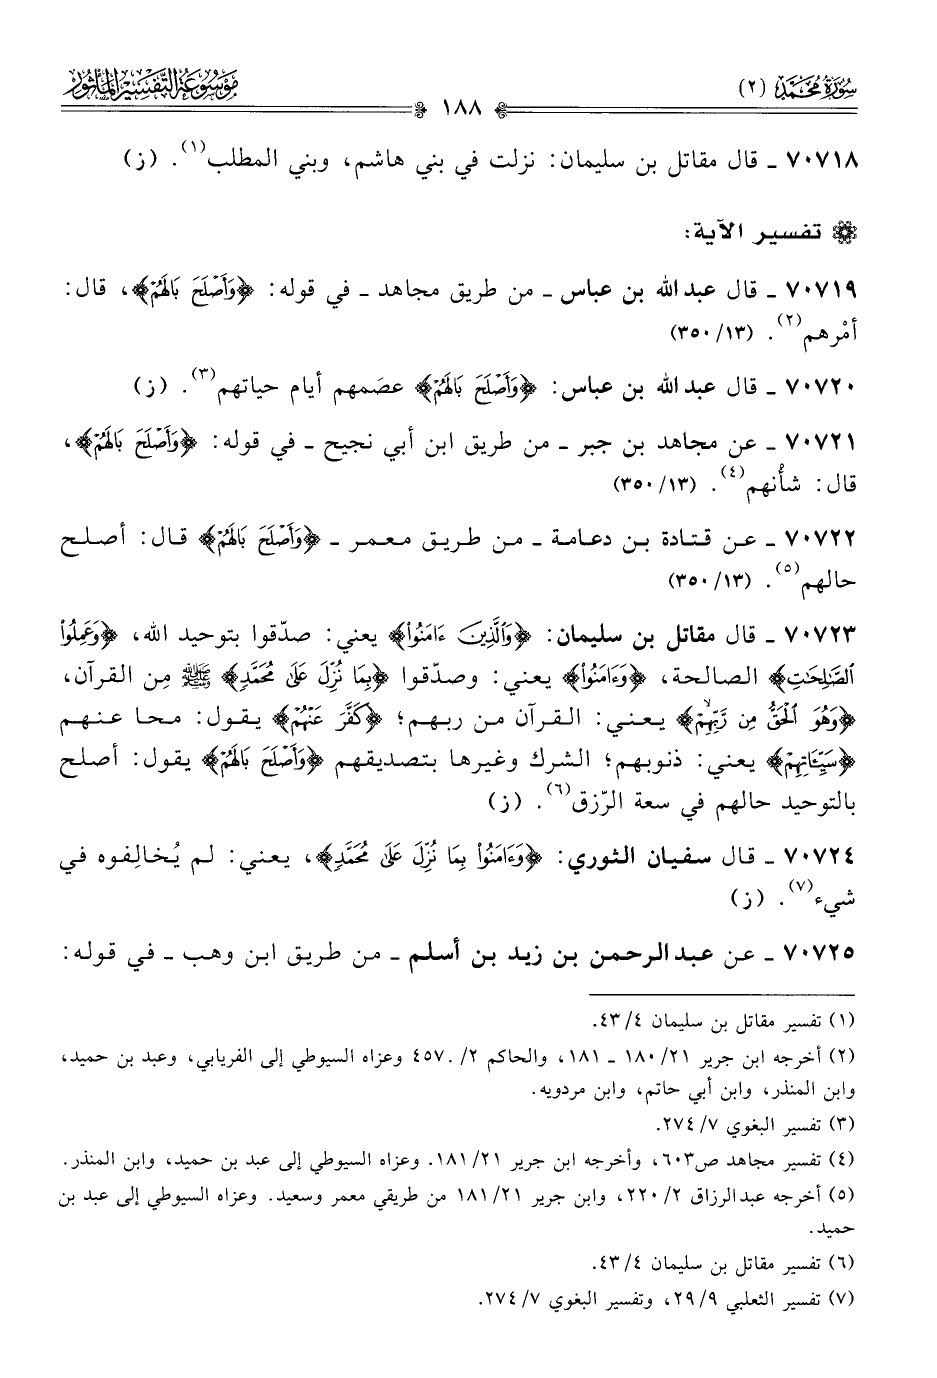 سُورَةُ مُحَمَّدٍ (٢)
١٨٨
مَوْسُوعَةُ التَّفْسِيرِ المَأْثُور
٧٠٧١٨ ـ قال مقاتل بن سليمان: نزلت في بني هاشم، وبني المطلب(١). (ز)
تفسير الآية:
٧٠٧١٩ ـ قال عبد الله بن عباس ـ من طريق مجاهد ـ في قوله: ﴿وَأَصْلَحَ بَالَهُمْ﴾، قال:
أمْرهم(٢). (١٣/ ٣٥٠)
٧٠٧٢٠ ـ قال عبد الله بن عباس: ﴿وَأَصْلَحَ بَالَهُمْ﴾ عصَمهم أيام حياتهم(٣). (ز)
٧٠٧٢١ ـ عن مجاهد بن جبر ـ من طريق ابن أبي نجيح ـ في قوله: ﴿وَأَصْلَحَ بَالَهُمْ﴾،
قال: شأْنهم(٤). (١٣/ ٣٥٠)
٧٠٧٢٢ ـ عن قتادة بن دعامة ـ من طريق معمر ـ ﴿وَأَصْلَحَ بَالَهُمْ﴾ قال: أصلح
حالهم(٥). (١٣/ ٣٥٠)
٧٠٧٢٣ ـ قال مقاتل بن سليمان: ﴿وَٱلَّذِينَ ءَامَنُواْ﴾ يعني: صدّقوا بتوحيد الله، ﴿وَعَمِلُواْ
ٱلصَّٰلِحَٰتِ﴾ الصالحة، ﴿وَءَامَنُواْ﴾ يعني: وصدّقوا ﴿بِمَا نُزِّلَ عَلَىٰ مُحَمَّدٍ﴾ ﷺ مِن القرآن،
﴿وَهُوَ ٱلْحَقُّ مِن رَّبِّهِمْۙ﴾ يعني: القرآن من ربهم؛ ﴿كَفَّرَ عَنْهُمْ﴾ يقول: محا عنهم
﴿سَيِّـَٔاتِهِمْ﴾ يعني: ذنوبهم؛ الشرك وغيرها بتصديقهم ﴿وَأَصْلَحَ بَالَهُمْ﴾ يقول: أصلح
بالتوحيد حالهم في سعة الرّزق(٦). (ز)
٧٠٧٢٤ ـ قال سفيان الثوري: ﴿وَءَامَنُواْ بِمَا نُزِّلَ عَلَىٰ مُحَمَّدٍ﴾، يعني: لم يُخالِفوه في
شيء(٧). (ز)
٧٠٧٢٥ ـ عن عبد الرحمن بن زيد بن أسلم ـ من طريق ابن وهب ـ في قوله:
(١) تفسير مقاتل بن سليمان ٤/ ٤٣.
(٢) أخرجه ابن جرير ٢١/ ١٨٠ ـ ١٨١، والحاكم ٢/ ٤٥٧. وعزاه السيوطي إلى الفريابي، وعبد بن حميد،
وابن المنذر، وابن أبي حاتم، وابن مردويه.
(٣) تفسير البغوي ٧/ ٢٧٤.
(٤) تفسير مجاهد ص٦٠٣، وأخرجه ابن جرير ٢١/ ١٨١. وعزاه السيوطي إلى عبد بن حميد، وابن المنذر.
(٥) أخرجه عبد الرزاق ٢/ ٢٢٠، وابن جرير ٢١/ ١٨١ من طريقي معمر وسعيد. وعزاه السيوطي إلى عبد بن
حميد.
(٦) تفسير مقاتل بن سليمان ٤/ ٤٣.
(٧) تفسير الثعلبي ٩/ ٢٩، وتفسير البغوي ٧/ ٢٧٤.